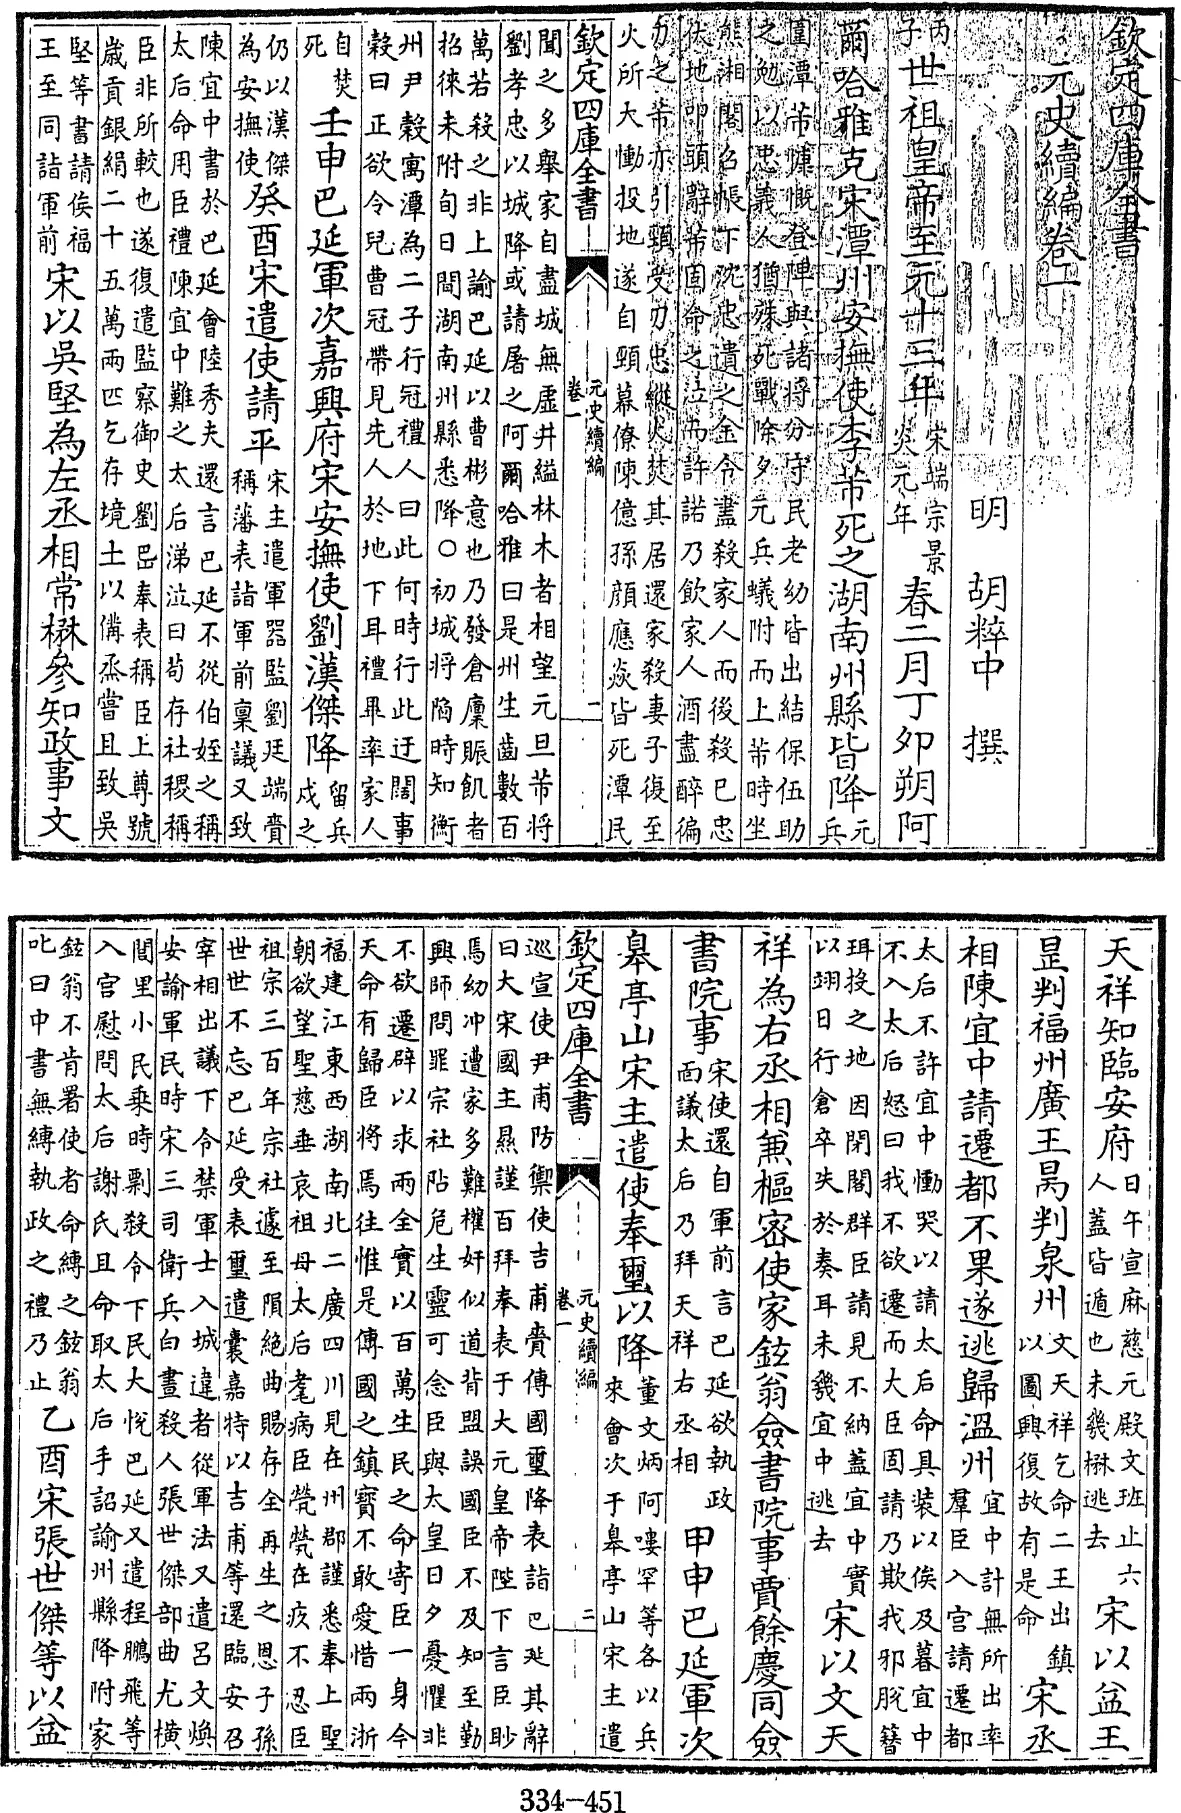 欽定四庫全書
元史續編卷一
明 胡粹中 撰
丙子 世祖皇帝至元十三年 宋端宗景炎元年 春二月丁卯朔阿
爾哈雅克宋潭州安撫使李芾死之湖南州縣皆降 元兵
圍潭芾慷慨登陴與諸將分守民老幼皆出結保伍助
之勉以忠義人猶殊死戰除夕元兵蟻附而上芾時坐
熊湘閣召帳下沈忠遺之金令盡殺家人而後殺已忠
伏地叩頭辭芾固命之泣而許諾乃飲家人酒盡醉徧
刃之芾亦引頸受刃忠縱火焚其居還家殺妻子復至
火所大慟投地遂自剄幕僚陳億孫顔應焱皆死潭民
欽定四庫全書 元史續編 卷一 一
聞之多舉家自盡城無虛井縊林木者相望元旦芾將
劉孝忠以城降或請屠之阿爾哈雅曰是州生齒數百
萬若殺之非上諭巴延以曹彬意也乃發倉廩賑飢者
招徠未附旬日間湖南州縣悉降○初城將陷時知衡
州尹榖寓潭為二子行冠禮人曰此何時行此迂闊事
榖曰正欲令兒曹冠帶見先人於地下耳禮畢率家人
自焚死 壬申巴延軍次嘉興府宋安撫使劉漢傑降 留兵戍之
仍以漢傑為安撫使 癸酉宋遣使請平 宋主遣軍器監劉廷端賫稱藩表詣軍前稟議又致
陳宜中書於巴延會陸秀夫還言巴延不從伯姪之稱
太后命用臣禮陳宜中難之太后涕泣曰苟存社稷稱
臣非所較也遂復遣監察御史劉岊奉表稱臣上尊號
歲貢銀絹二十五萬兩匹乞存境土以備烝嘗且致吳
堅等書請俟福王至同詣軍前 宋以吳堅為左丞相常楙參知政事文
天祥知臨安府 日午宣麻慈元殿文班止六人蓋皆遁也未幾楙逃去 宋以益王
昰判福州廣王昺判泉州 文天祥乞命二王出鎮以圖興復故有是命 宋丞
相陳宜中請遷都不果遂逃歸溫州 宜中計無所出率羣臣入宮請遷都
太后不許宜中慟哭以請太后命具裝以俟及暮宜中
不入太后怒曰我不欲遷而大臣固請乃欺我邪脫簪
珥投之地因閉閣群臣請見不納蓋宜中實以翊日行倉卒失於奏耳未幾宜中逃去 宋以文天
祥為右丞相兼樞密使家鉉翁僉書院事賈餘慶同僉
書院事 宋使還自軍前言巴延欲執政面議太后乃拜天祥右丞相 甲申巴延軍次
皋亭山宋主遣使奉璽以降 董文炳阿嘍罕等各以兵來會次于皋亭山宋主遣
欽定四庫全書 元史續編 卷一 二
巡宣使尹甫防禦使吉甫賫傳國璽降表詣巴延其辭
曰大宋國主㬎謹百拜奉表于大元皇帝陛下言臣眇
焉幼冲遭家多難權奸似道背盟誤國臣不及知至勤
興師問罪宗社阽危生靈可念臣與太皇日夕憂懼非
不欲遷辟以求兩全實以百萬生民之命寄臣一身今
天命有歸臣將焉往惟是傳國之鎮寶不敢愛惜兩浙
福建江東西湖南北二廣四川見在州郡謹悉奉上聖
朝欲望聖慈垂哀祖母太后耄病臣煢煢在疚不忍臣
祖宗三百年宗社遽至隕絶曲賜存全再生之恩子孫
世世不忘巴延受表璽遣囊嘉特以吉甫等還臨安召
宰相出議下令禁軍士入城違者從軍法又遣呂文煥
安諭軍民時宋三司衛兵白晝殺人張世傑部曲尤橫
閭里小民乘時剽殺令下民大悅巴延又遣程鵬飛等
入宮慰問太后謝氏且命取太后手詔諭州縣降附家
鉉翁不肯署使者命縛之鉉翁叱曰中書無縛執政之禮乃止 乙酉宋張世傑等以益
334-451